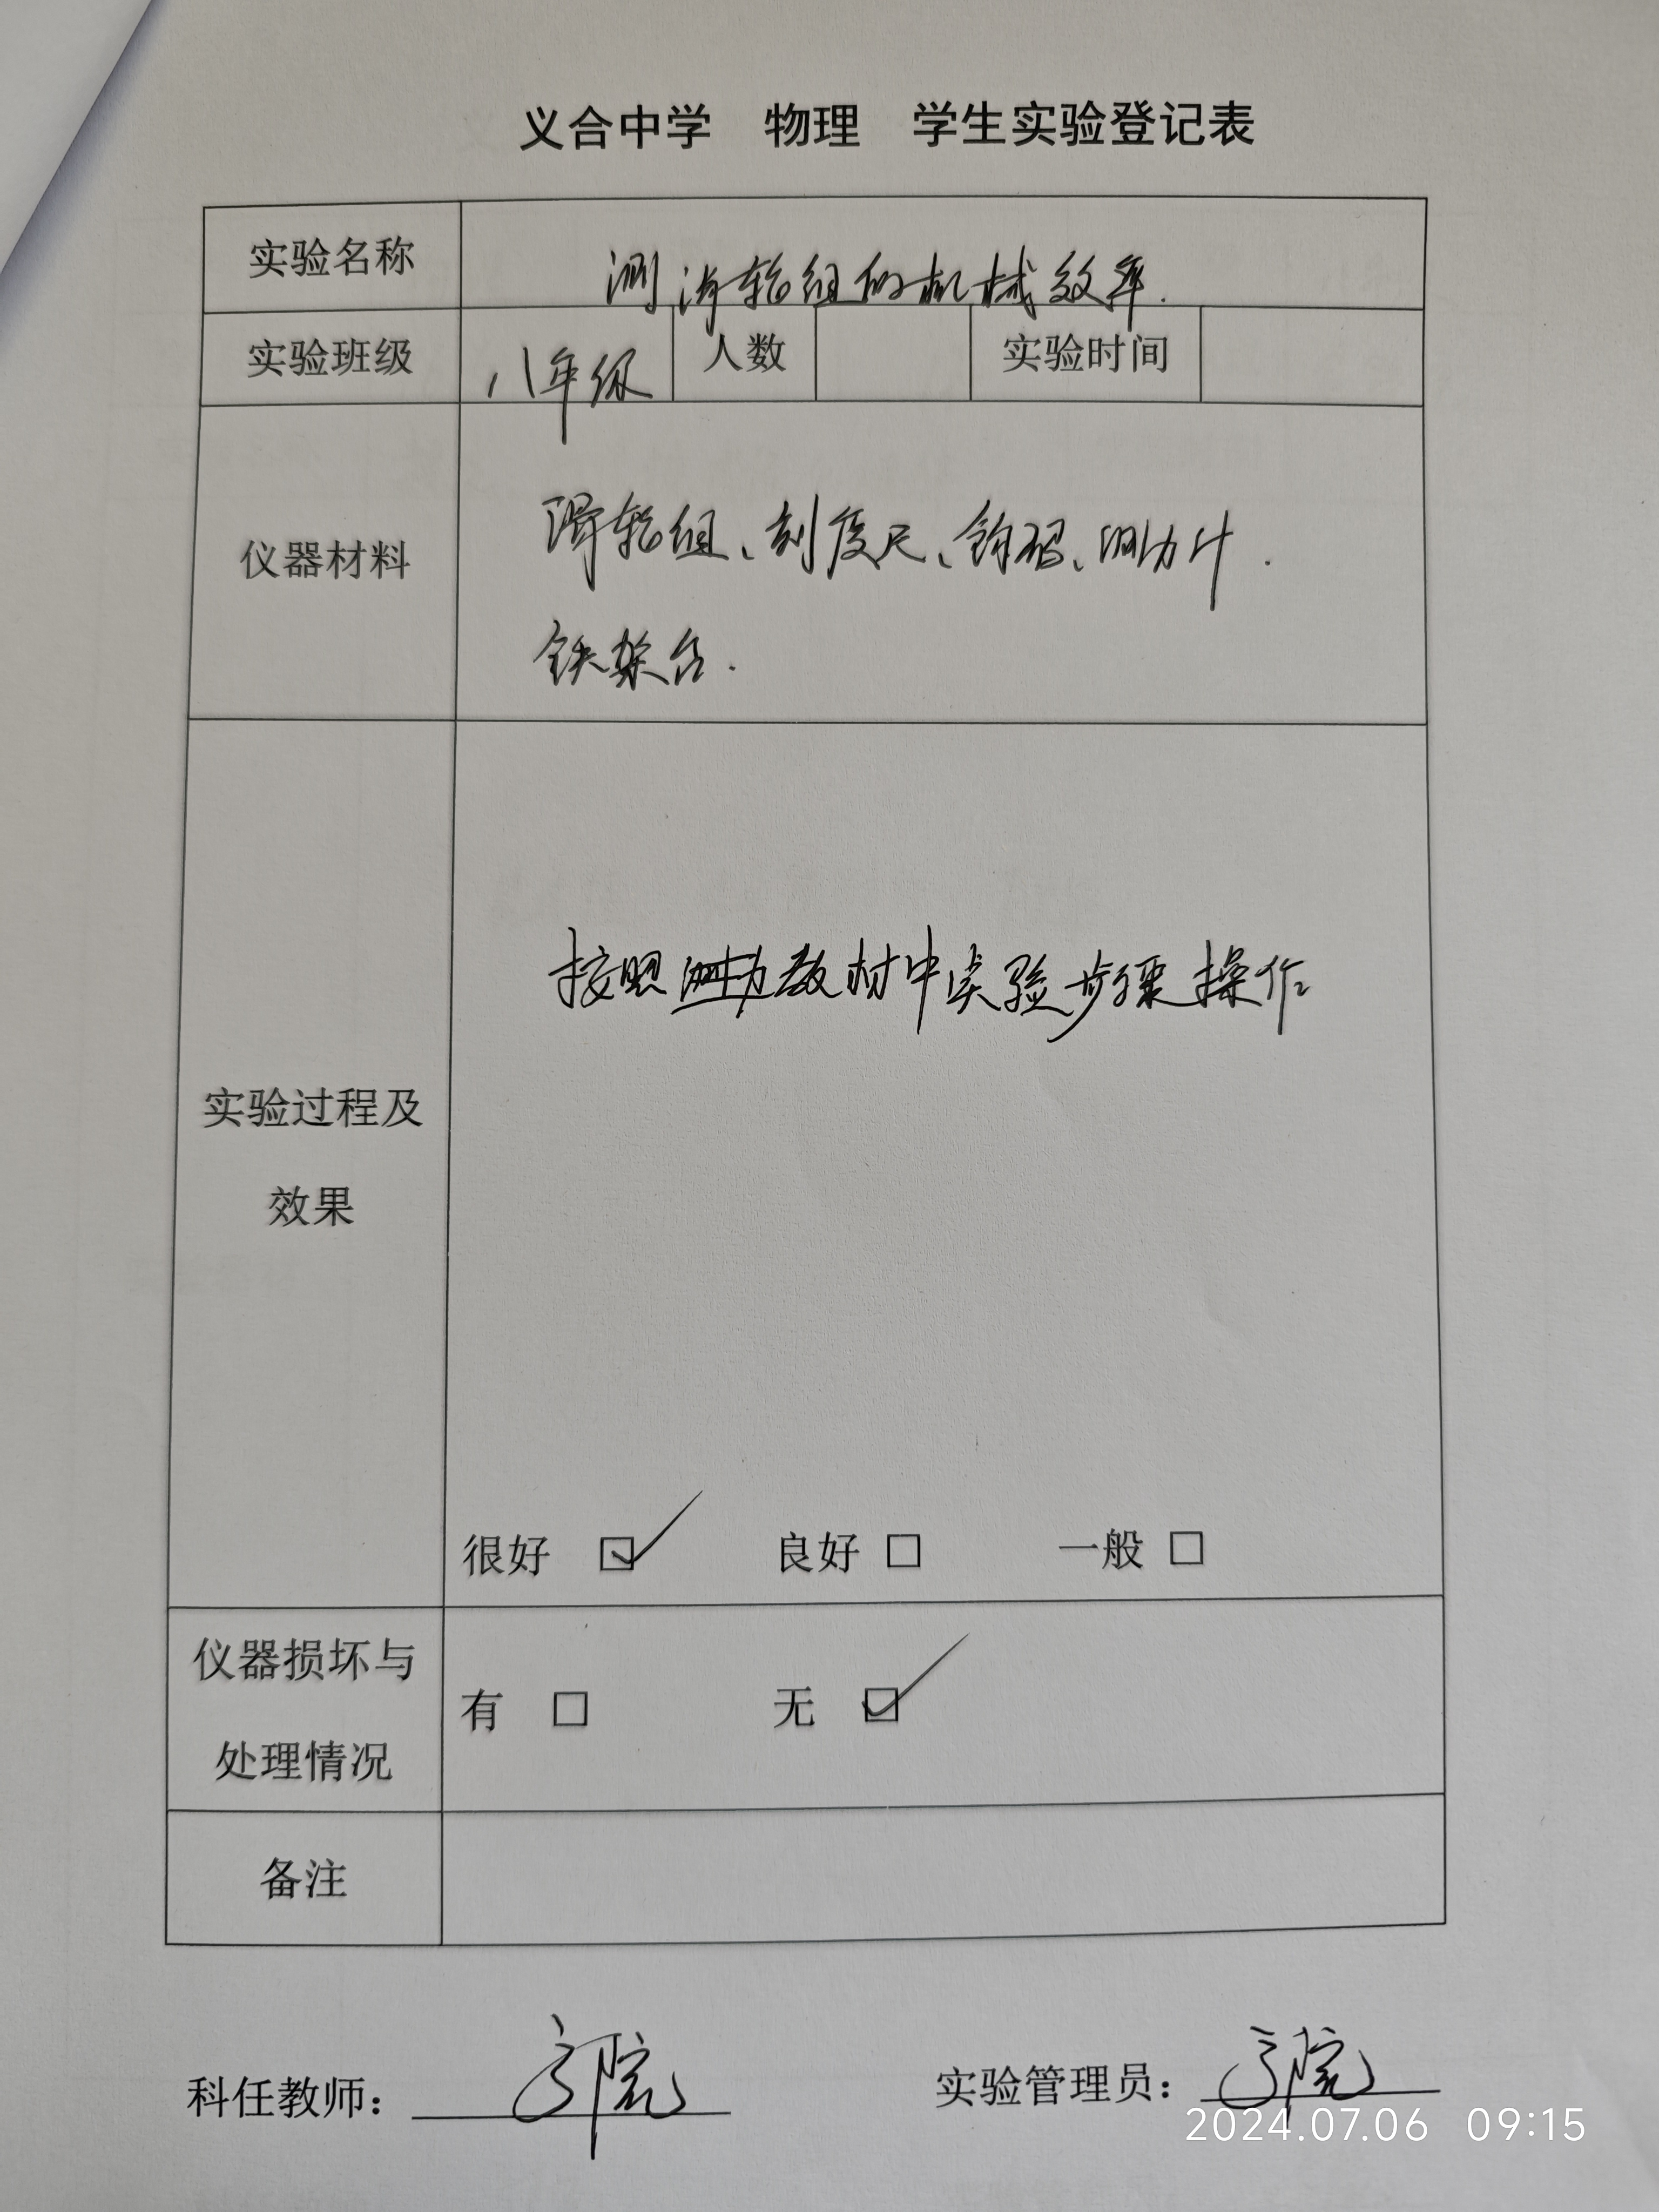 义合中学 物理 学生实验登记表
实验名称 测滑轮组的机械效率.
实验班级 八年级 人数 实验时间
仪器材料 滑轮组、刻度尺、钩码、测力计.
铁架台.
按照教材中实验步骤操作
实验过程及
效果
很好 ☑ 良好 □ 一般 □
仪器损坏与
有 □ 无 ☑
处理情况
备注
科任教师： 实验管理员：
2024.07.06 09:15